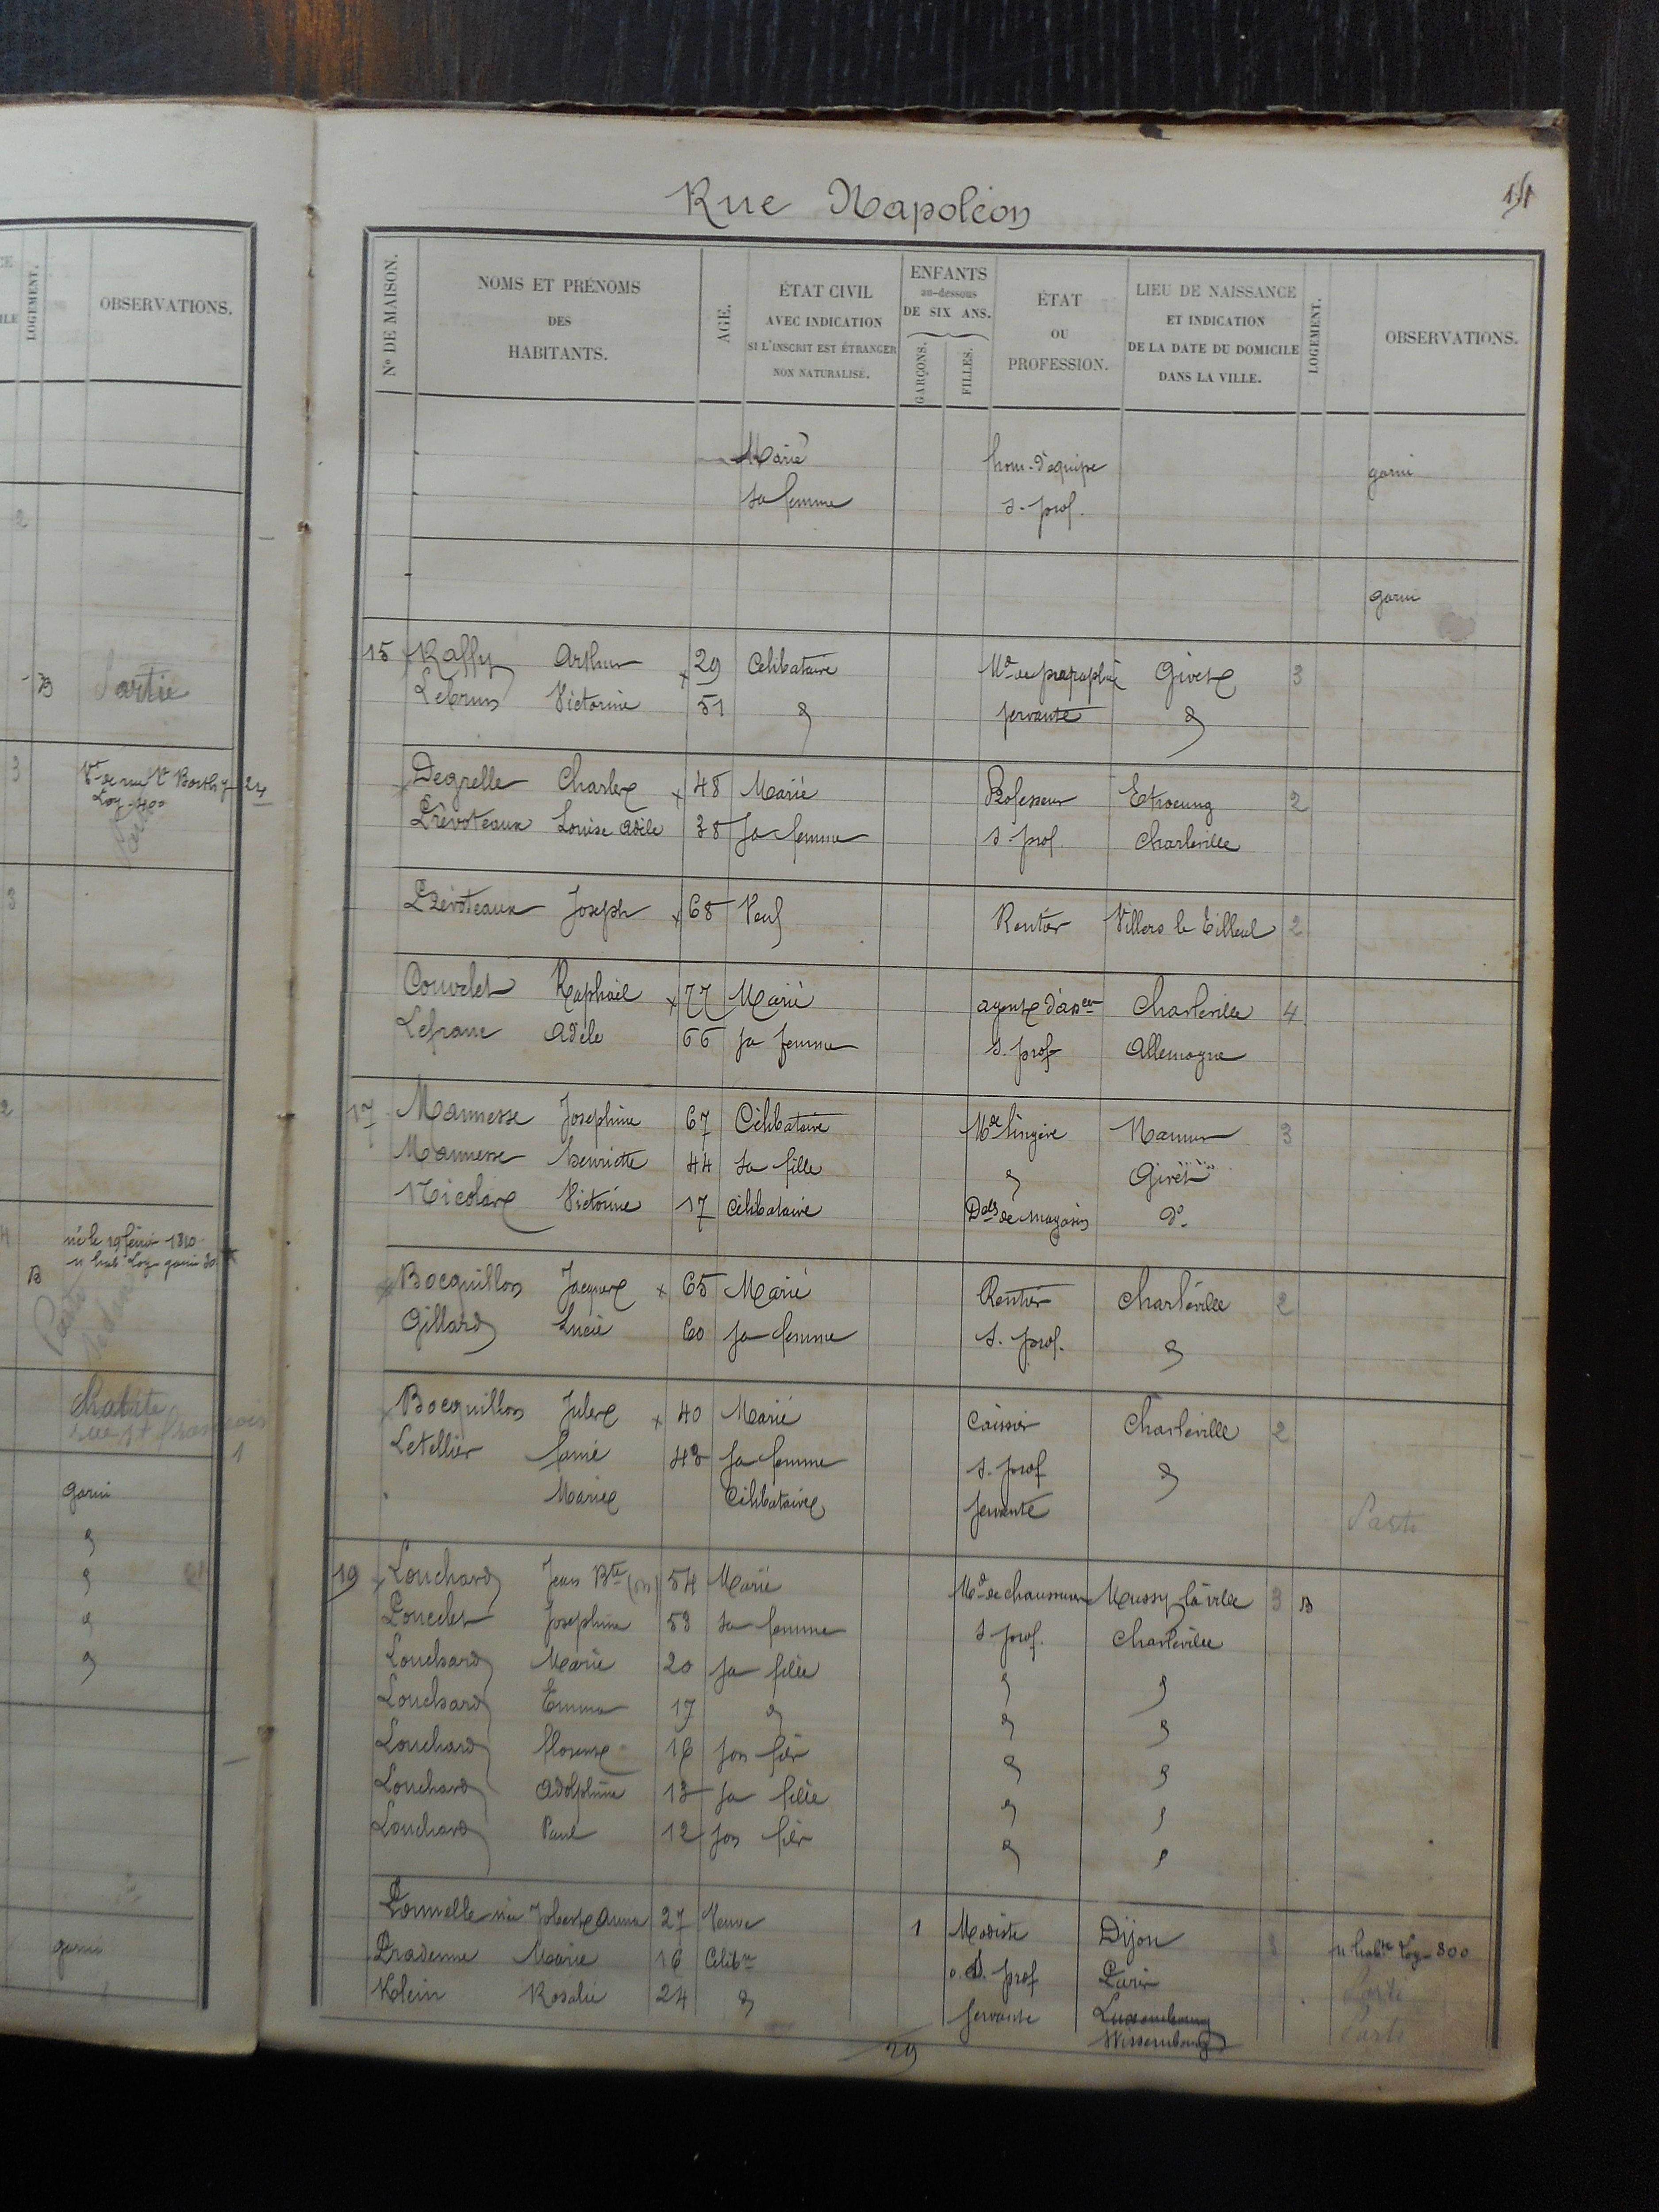 Rue Napoléon
OBSERVATIONS.
LOGEMENT.
Nº DE MAISON.
NOMS ET PRÉNOMS
DES
HABITANTS.
AGE.
ÉTAT CIVIL
AVEC INDICATION
SI L'INSCRIT EST ÉTRANGER
NON NATURALISÉ.
ENFANTS
au-dessous
DE SIX ANS.
GARÇONS.
FILLES.
ÉTAT
OU
PROFESSION.
LIEU DE NAISSANCE
ET INDICATION
DE LA DATE DU DOMICILE
DANS LA VILLE.
LOGEMENT.
OBSERVATIONS.
Marié hom. d'équipe garni
sa femme s. prof.
garni
15 Raffy Arthur x 29 Célibataire Givet 3
Lebrun Victorine 51 " servante "
Degrelle Charles x 48 Marié Professeur Etroeung 2
Prévoteaux Louise Adèle 38 sa femme s. prof. Charleville
Prévoteaux Joseph x 68 Veuf Rentier Villers le Tilleul 2
Couvelet Raphaël x 77 Marié Charleville 4
Lefranc Adèle 66 sa femme s. prof Allemagne
17 Mannesse Josephine 67 Célibataire Mde lingère Namur 3
Mannesse henriette 44 sa fille " Givet
Nicolas Victorine 17 célibataire Delle de magasin do
Bocquillon Jacques x 65 Marié Rentier Charleville 2
Gillard Lucie 60 sa femme s. prof. "
Bocquillon Jules x 40 Marié Caissier Charleville 2
Letellier 43 sa femme s. prof "
Marie Célibataire servante Partie
19 Louchard Jean Bte 54 Marié Md de chaussures Mussy la ville 3 B
Poncelet Josephine 53 sa femme s. prof. Charleville
Louchard Marie 20 sa fille " "
Louchard Emma 17 " " "
Louchard 16 son fils " "
Louchard Adolphine 13 sa fille " "
Louchard Paul 12 son fils " "
Anna 27 Veuve 1 Modiste Dijon 300
Marie 16 Célibre s. prof Paris Partie
Klein Rosalie 24 " servante Luxembourg Partie
Wissembourg
29
Partie
garni
"
"
"
"
garni